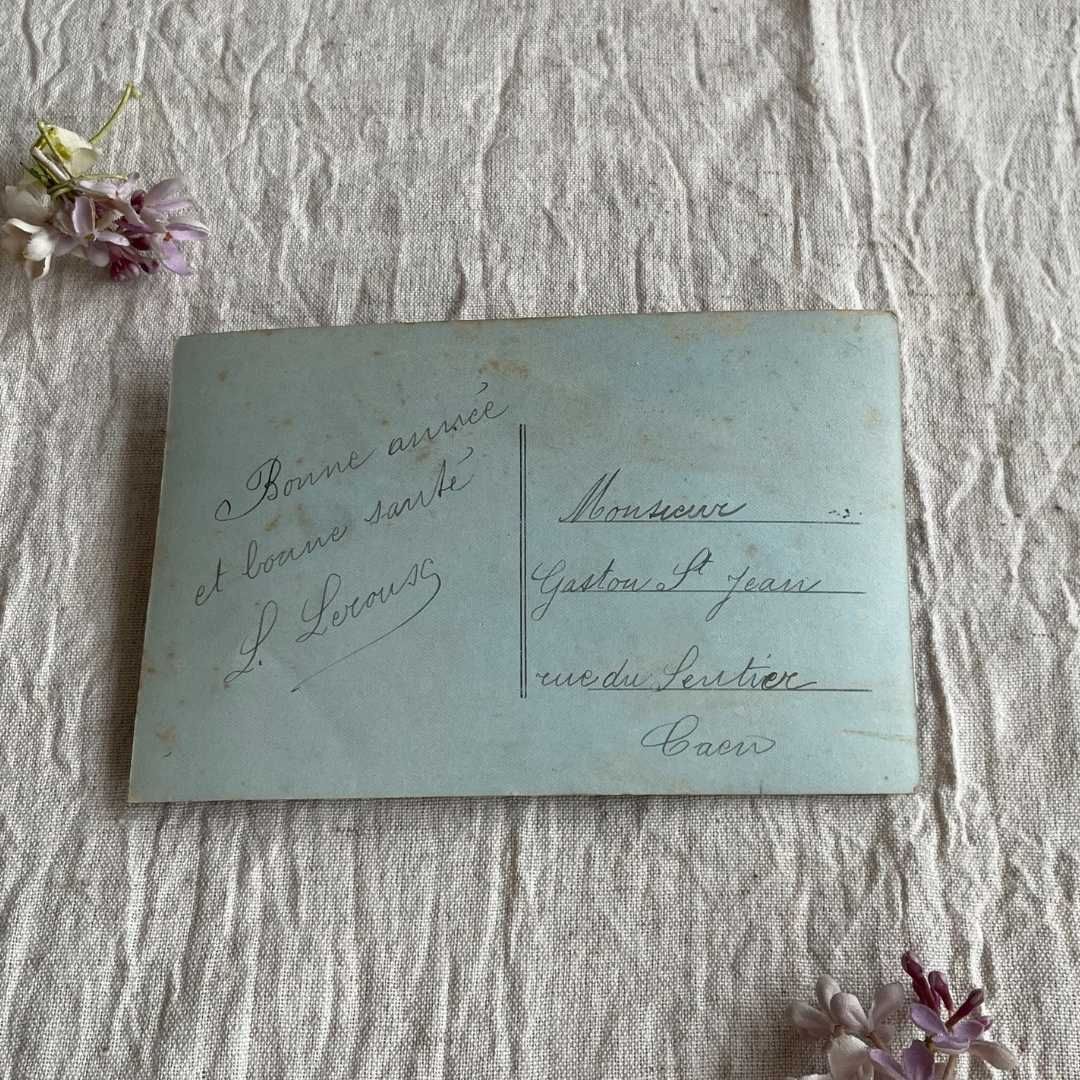 Bonne année
et bonne santé
L. Leroux
Monsieur
Gaston St Jean
rue du Sentier
Caen